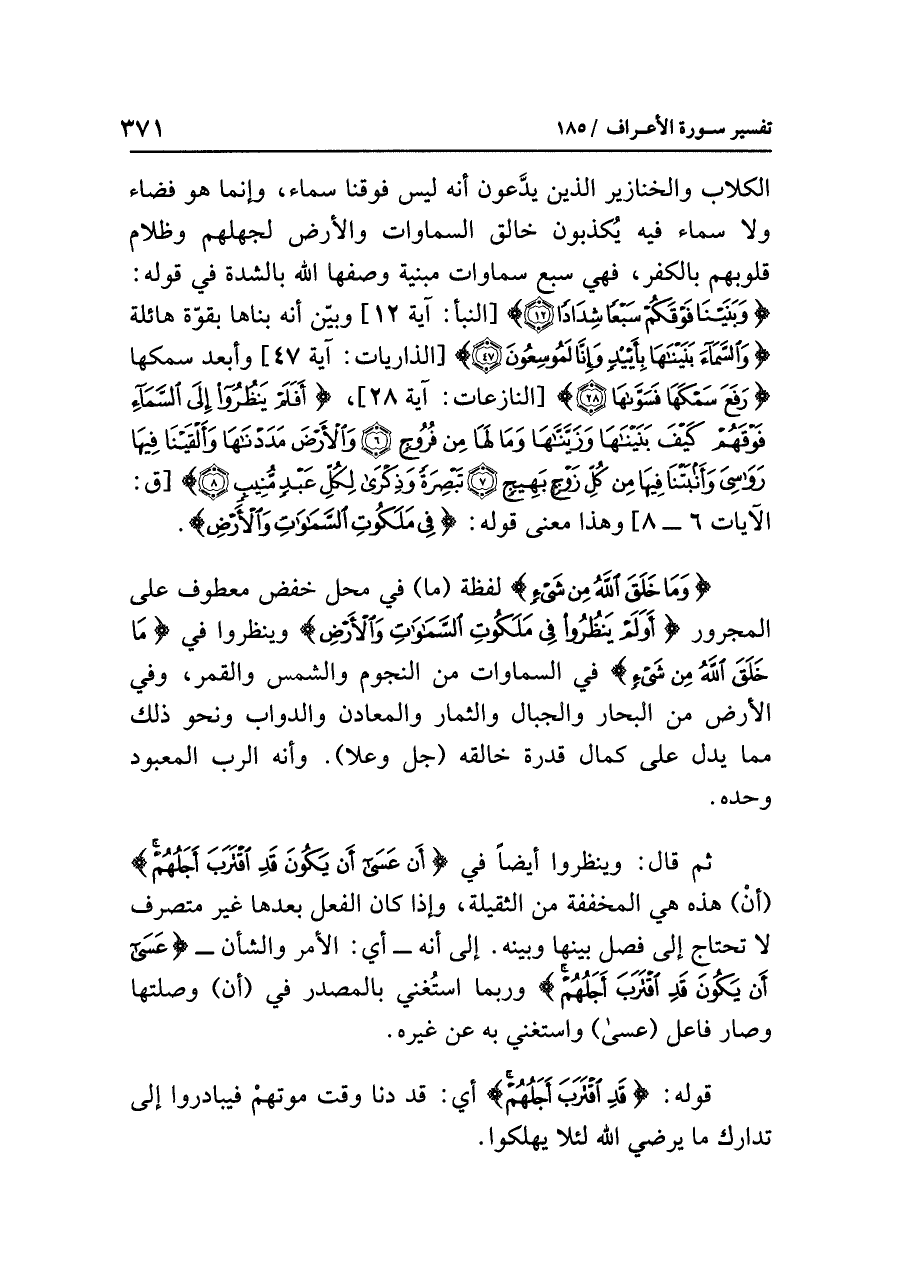 تفسير سـورة الأعـراف / ١٨٥ ٣٧١
الكلاب والخنازير الذين يدَّعون أنه ليس فوقنا سماء، وإنما هو فضاء
ولا سماء فيه يُكذبون خالق السماوات والأرض لجهلهم وظلام
قلوبهم بالكفر، فهي سبع سماوات مبنية وصفها الله بالشدة في قوله:
﴿ وَبَنَيْنَا فَوْقَكُمْ سَبْعًا شِدَادًا ۝١٢ ﴾ [النبأ: آية ١٢] وبيّن أنه بناها بقوّة هائلة
﴿ وَٱلسَّمَآءَ بَنَيْنَٰهَا بِأَيْي۟دٍ وَإِنَّا لَمُوسِعُونَ ۝٤٧ ﴾ [الذاريات: آية ٤٧] وأبعد سمكها
﴿ رَفَعَ سَمْكَهَا فَسَوَّىٰهَا ۝٢٨ ﴾ [النازعات: آية ٢٨]، ﴿ أَفَلَمْ يَنظُرُوٓا۟ إِلَى ٱلسَّمَآءِ
فَوْقَهُمْ كَيْفَ بَنَيْنَٰهَا وَزَيَّنَّٰهَا وَمَا لَهَا مِن فُرُوجٍ ۝٦ وَٱلْأَرْضَ مَدَدْنَٰهَا وَأَلْقَيْنَا فِيهَا
رَوَٰسِىَ وَأَنۢبَتْنَا فِيهَا مِن كُلِّ زَوْجٍۭ بَهِيجٍ ۝٧ تَبْصِرَةً وَذِكْرَىٰ لِكُلِّ عَبْدٍ مُّنِيبٍ ۝٨ ﴾ [ق:
الآيات ٦ ــ ٨] وهذا معنى قوله: ﴿ فِى مَلَكُوتِ ٱلسَّمَٰوَٰتِ وَٱلْأَرْضِ ﴾.
﴿ وَمَا خَلَقَ ٱللَّهُ مِن شَىْءٍ ﴾ لفظة (ما) في محل خفض معطوف على
المجرور ﴿ أَوَلَمْ يَنظُرُوا۟ فِى مَلَكُوتِ ٱلسَّمَٰوَٰتِ وَٱلْأَرْضِ ﴾ وينظروا في ﴿ مَا
خَلَقَ ٱللَّهُ مِن شَىْءٍ ﴾ في السماوات من النجوم والشمس والقمر، وفي
الأرض من البحار والجبال والثمار والمعادن والدواب ونحو ذلك
مما يدل على كمال قدرة خالقه (جل وعلا). وأنه الرب المعبود
وحده.
ثم قال: وينظروا أيضاً في ﴿ أَن عَسَىٰٓ أَن يَكُونَ قَدِ ٱقْتَرَبَ أَجَلُهُمْ ۖ ﴾
(أنْ) هذه هي المخففة من الثقيلة، وإذا كان الفعل بعدها غير متصرف
لا تحتاج إلى فصل بينها وبينه. إلى أنه ــ أي: الأمر والشأن ــ ﴿ عَسَىٰٓ
أَن يَكُونَ قَدِ ٱقْتَرَبَ أَجَلُهُمْ ۖ ﴾ وربما استُغني بالمصدر في (أن) وصلتها
وصار فاعل (عسىٰ) واستغني به عن غيره.
قوله: ﴿ قَدِ ٱقْتَرَبَ أَجَلُهُمْ ۖ ﴾ أي: قد دنا وقت موتهمْ فيبادروا إلى
تدارك ما يرضي الله لئلا يهلكوا.